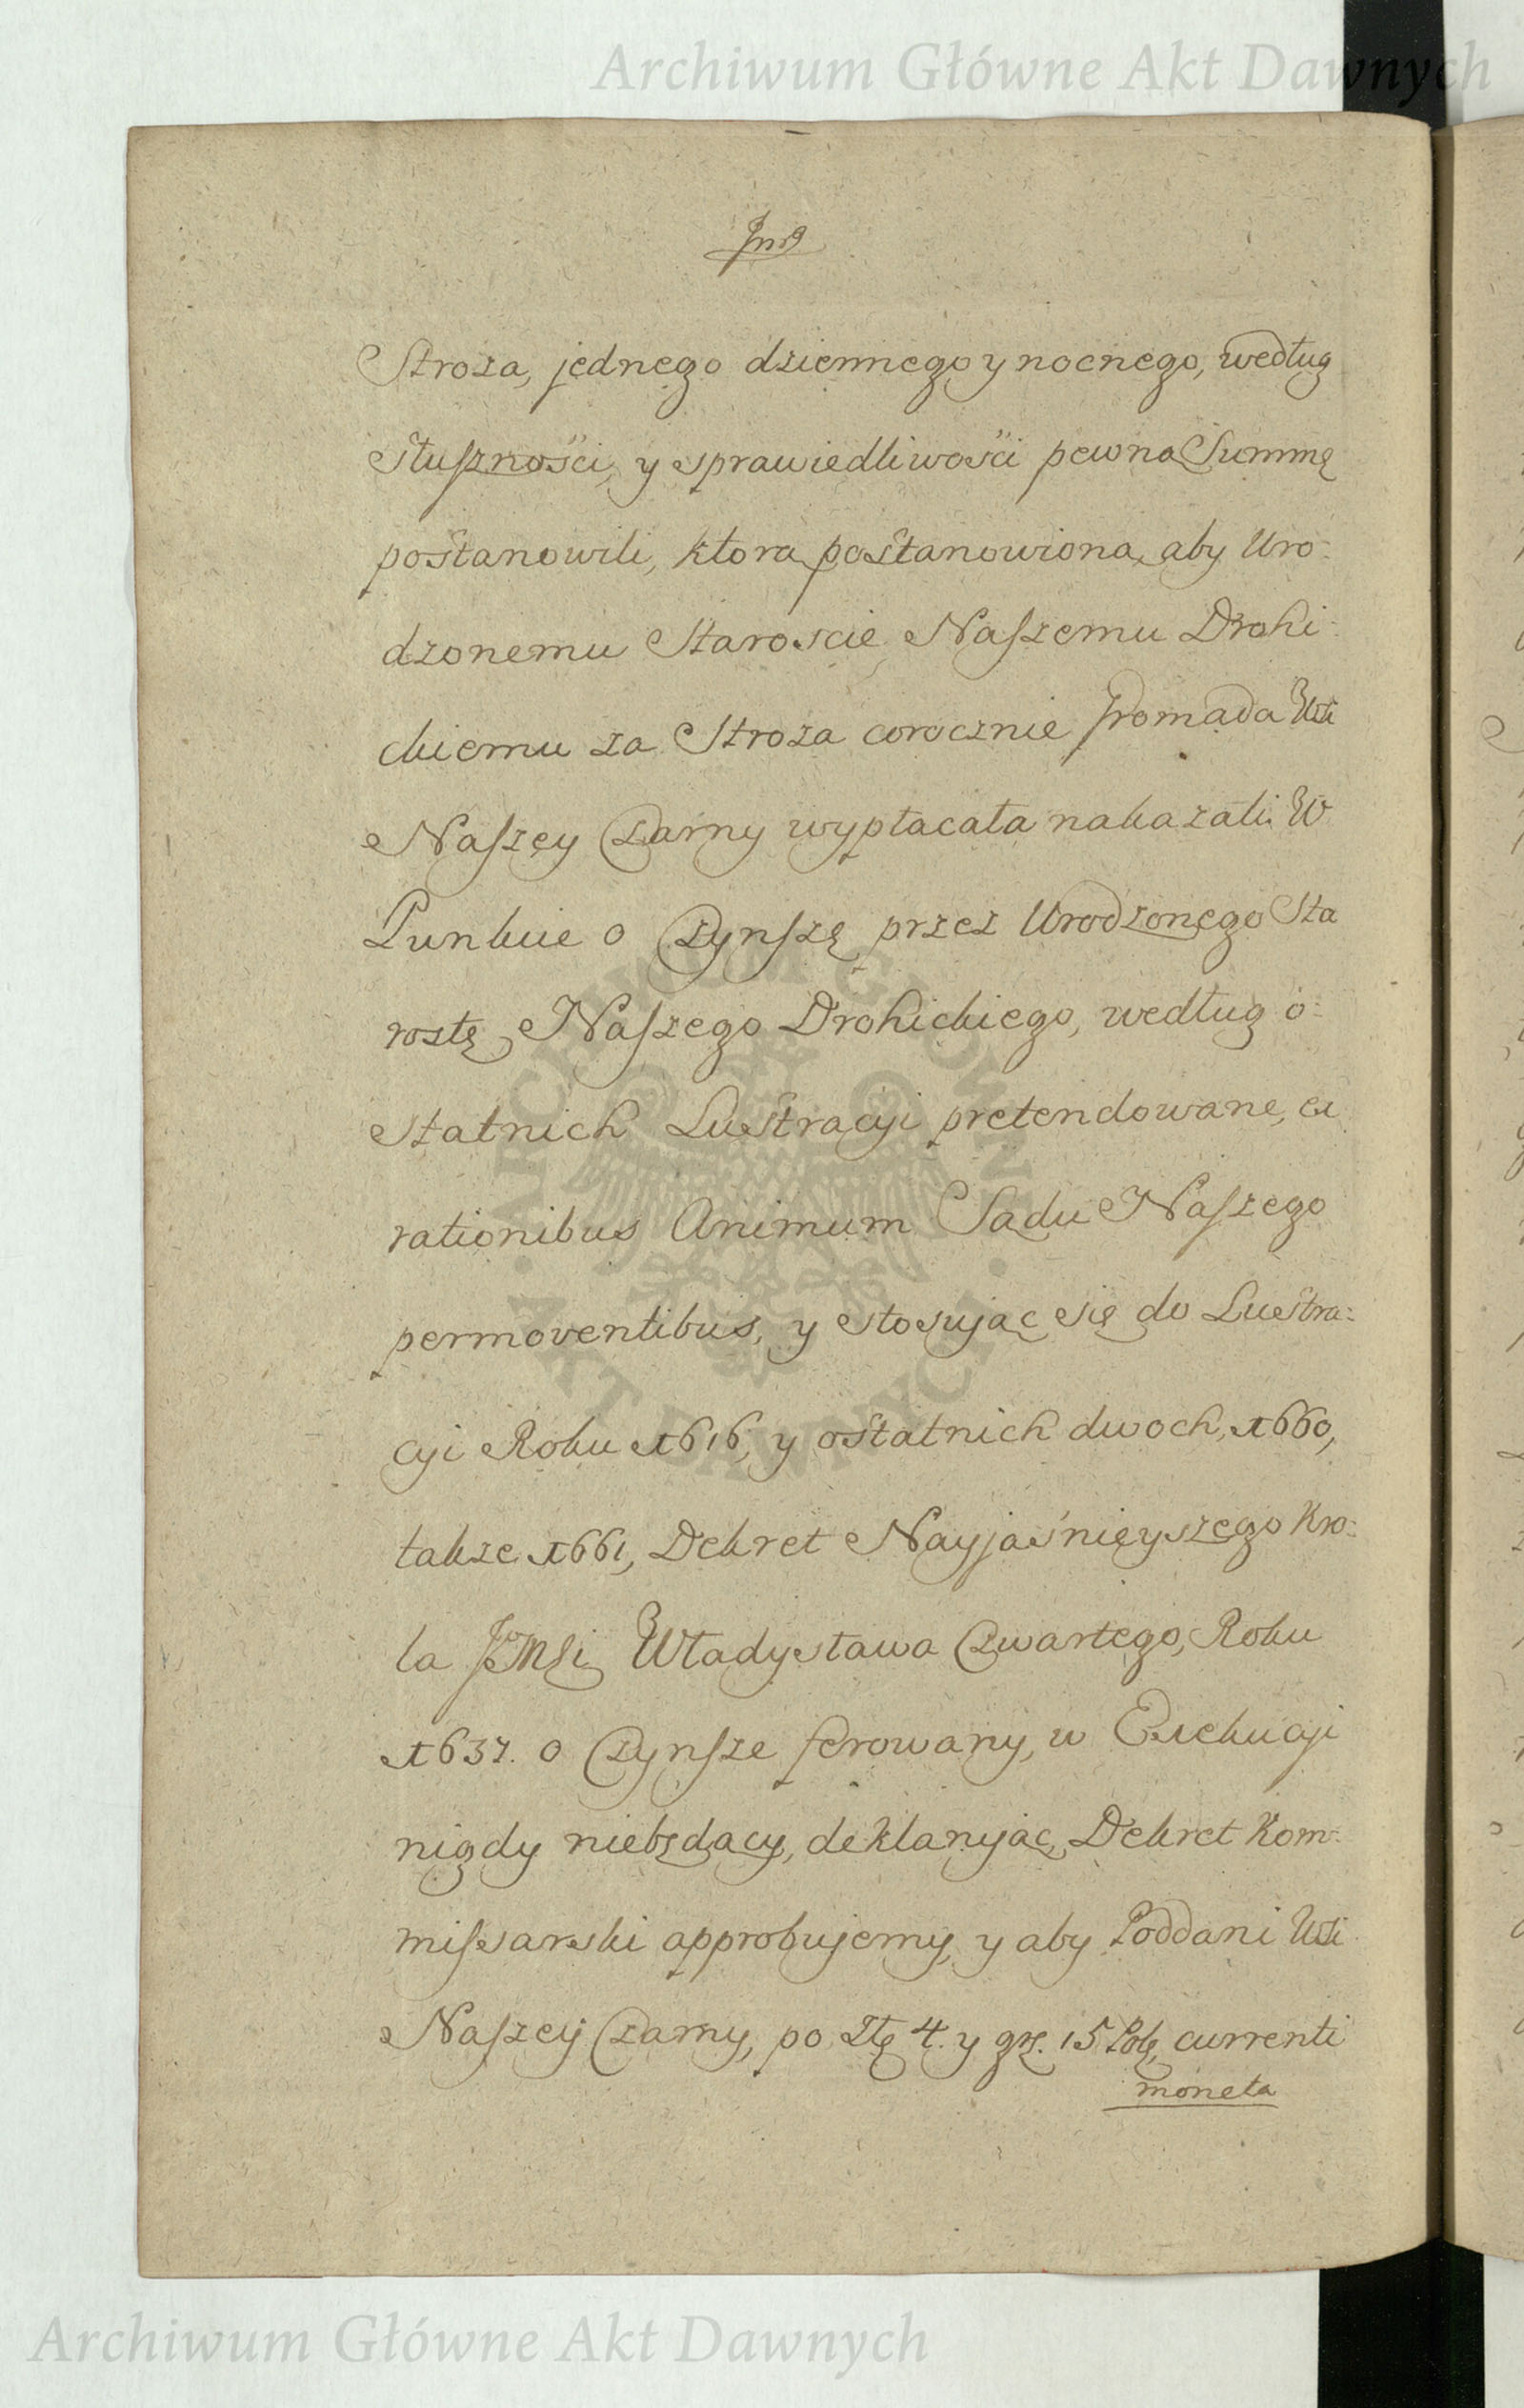 Archiwum Główne Akt Dawnych
Stroża, jednego dziennego y nocnego, według
słuszności, y sprawiedliwości pewną Summę
postanowili, ktora postanowiona, aby Uro:
dzonemu Staroscie Naszemu Drohi:
ckiemu za Stroża corocznie Gromada Wsi
Naszey Czarny wypłacała nakazali. W
Punkcie o Czynszę przez Urodzonego Sta
rostę Naszego Drohickiego, według o:
statnich Lustracyi pretendowane, ex
rationibus Animum Sądu Naszego
permoventibus, y stosując się do Lustra:
cyi Roku 1616, y ostatnich dwoch, 1660,
także 1661, Dekret Nayjaśnieyszego Kro:
la JoMsci Władysława Czwartego, Roku
1637. o Czynsze ferowany, w Exekucyi
nigdy niebędący, deklarując, Dekret Kom:
missarski approbujemy, y aby Poddani Wsi
Naszey Czarny, po Złł 4. y gr. 15 Pol, currenti
moneta
ARCHIWUM GŁÓWNE
AKT DAWNYCH
Archiwum Główne Akt Dawnych